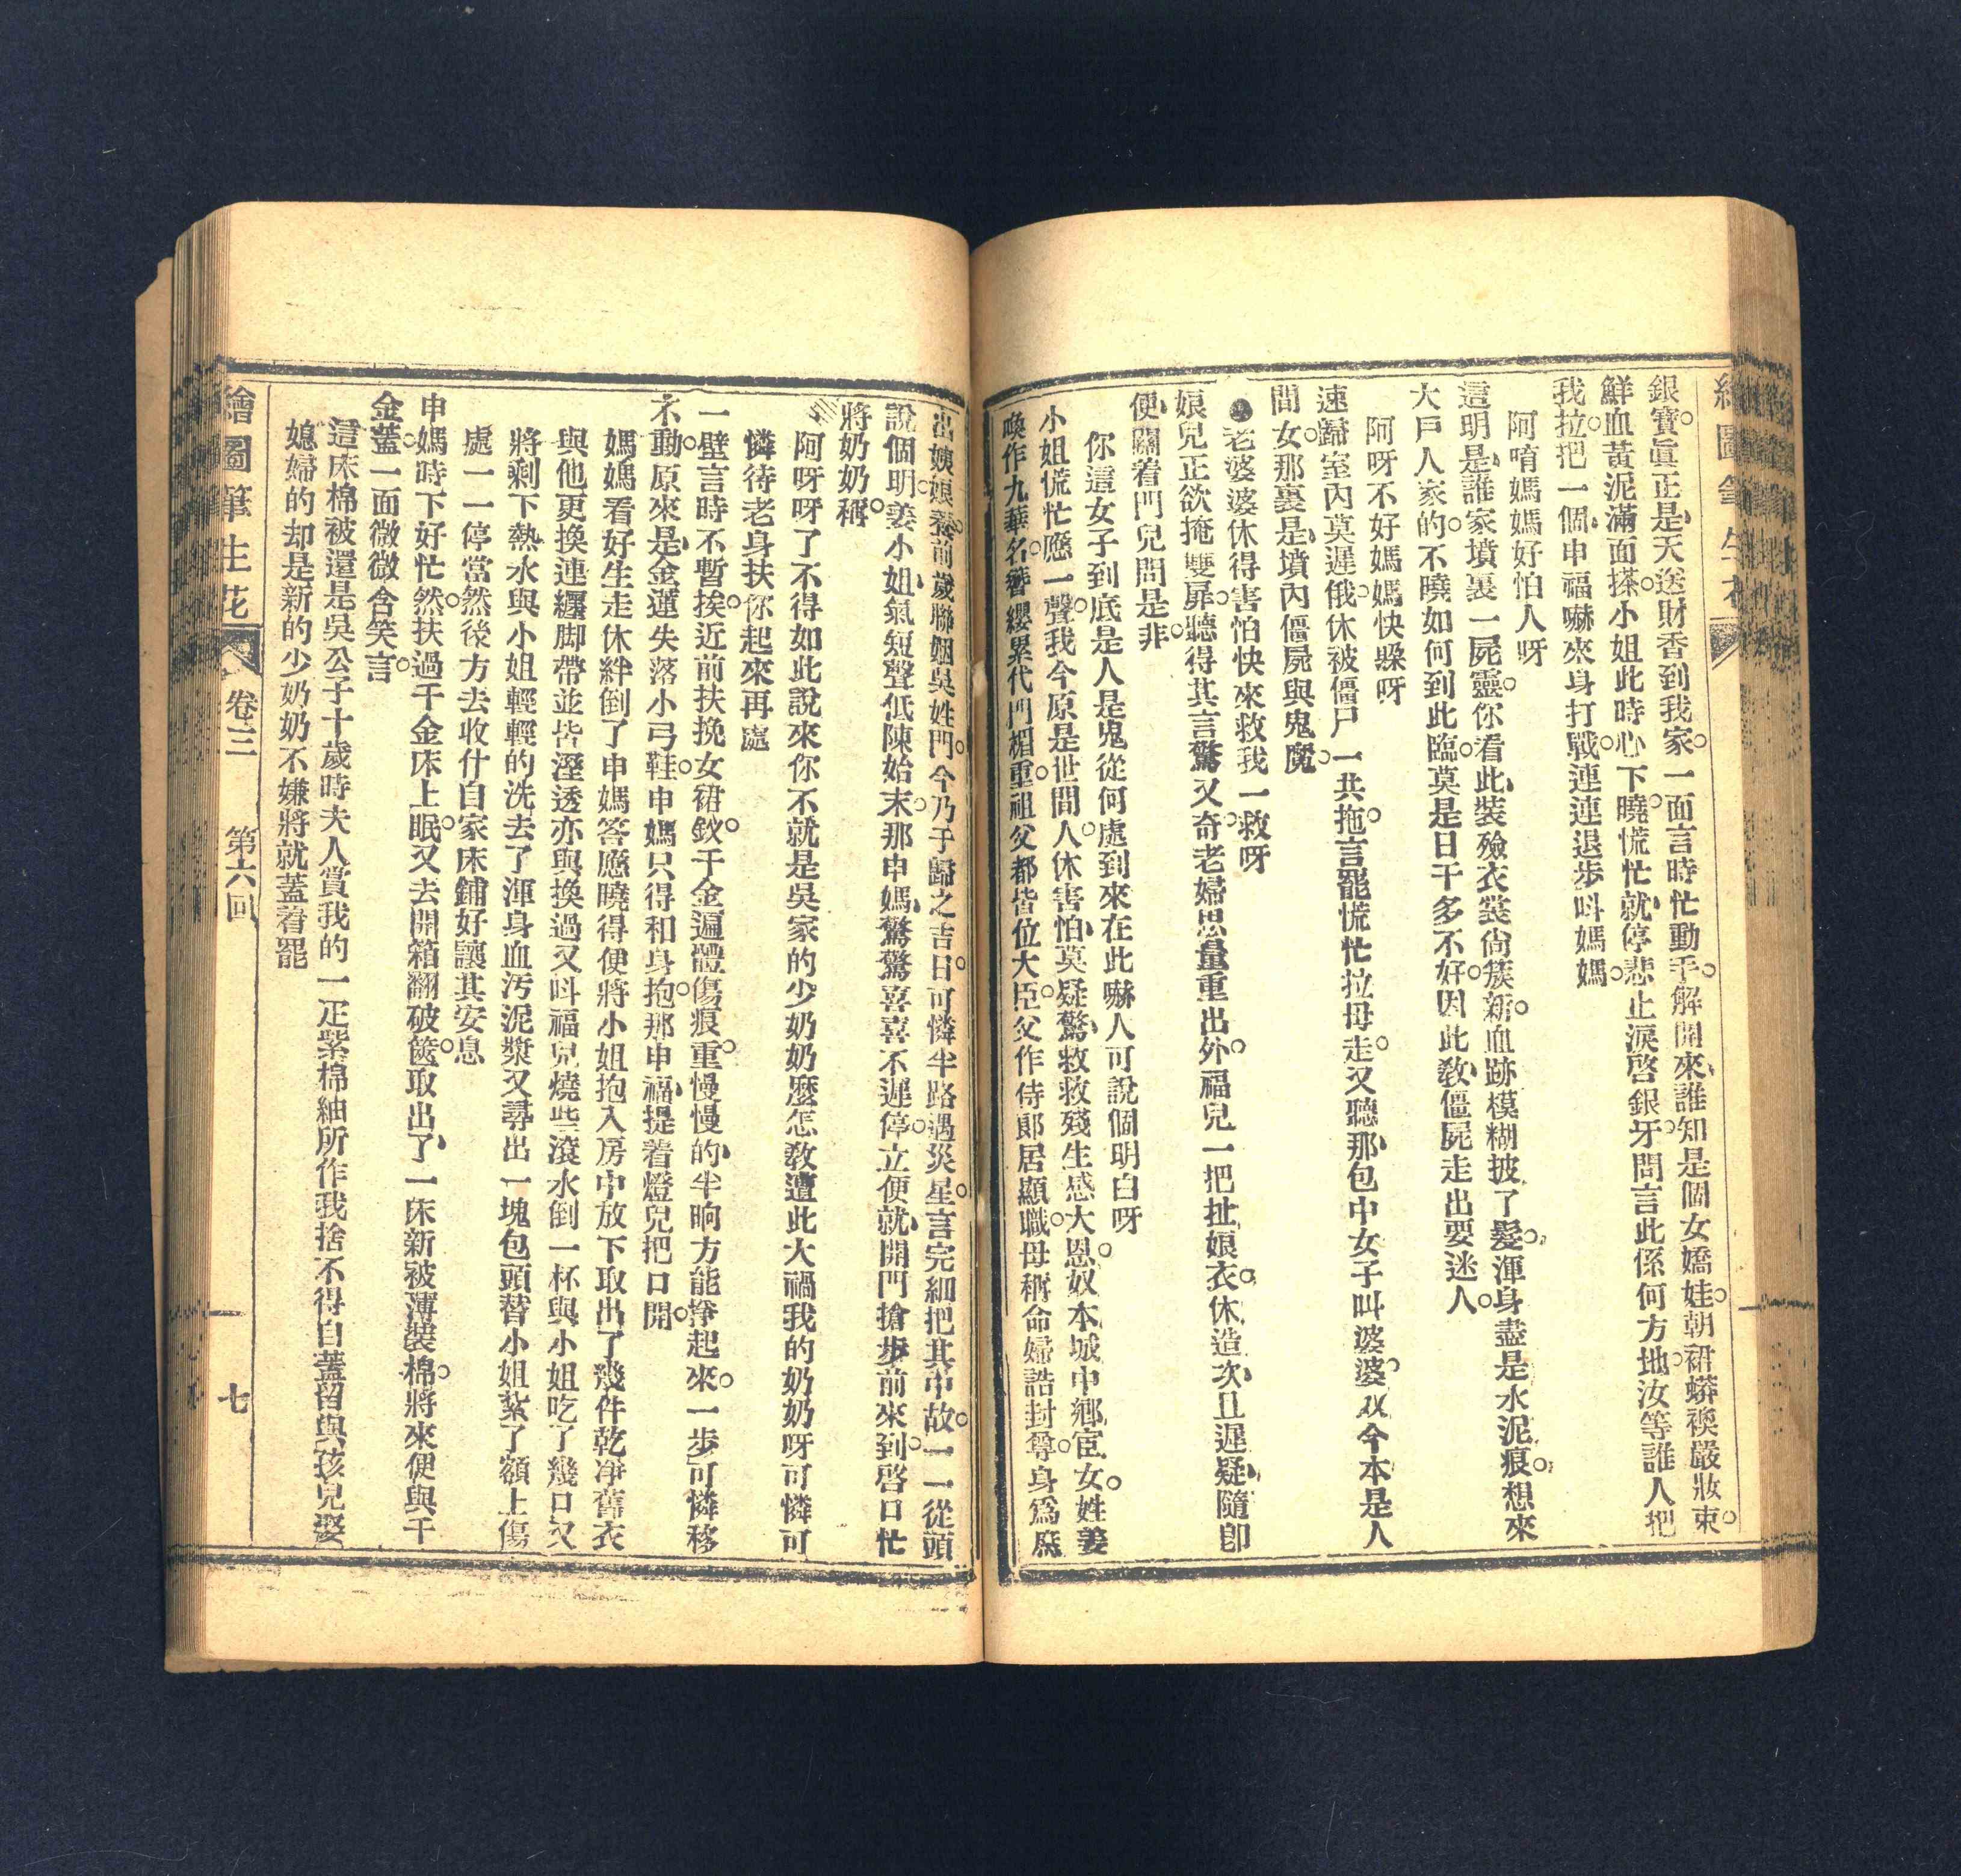 銀寶。眞正是天送財香到我家。一面言時忙動手。解開來誰知是個女嬌娃。朝裙蟒襖嚴妝束。
鮮血黃泥滿面搽。小姐此時心下曉。慌忙就停悲止淚啓銀牙。問言此係何方地。汝等誰人把
我拉。把一個申福嚇來身打戰。連連退步呌媽媽。
阿唷媽媽好怕人呀
這明是誰家墳裏一屍靈。你看此裝殮衣裳尙簇新。血跡模糊披了髮。渾身盡是水泥痕。想來
大戶人家的。不曉如何到此臨。莫是日干多不好。因此敎僵屍走出要迷人。
阿呀不好媽媽快躱呀
速歸室內莫遲俄。休被僵尸一共拖。言罷慌忙拉母走。又聽那包中女子叫婆婆。奴今本是人
間女。那裏是墳內僵屍與鬼魔。
老婆婆休得害怕快來救我一救呀
娘兒正欲掩雙扉。聽得其言驚又奇。老婦思量重出外。福兒一把扯娘衣。休造次且遲疑隨卽
便關着門兒問是非。
你這女子到底是人是鬼從何處到來在此嚇人可說個明白呀
小姐慌忙應一聲。我今原是世間人。休害怕莫疑驚救救殘生感大恩。奴本城中鄉宦女。姓姜
喚作九華名。簪纓累代門楣重。祖父都皆位大臣。父作侍郞居顯職。母稱命婦誥封尊。身爲庶
出姨娘養。前歲聯姻吳姓門。今乃于歸之吉日。可憐半路遇災星。言完細把其中故。一一從頭
說個明。姜小姐氣短聲低陳始末。那申媽驚驚喜喜不遲停。立便就開門搶步前來到。啓口忙
將奶奶稱。
阿呀呀了不得如此說來你不就是吳家的少奶奶麼怎敎遭此大禍我的奶奶呀可憐可
憐待老身扶你起來再處
一壁言時不暫挨。近前扶挽女裙釵。千金遍體傷痕重。慢慢的半晌方能掙起來。一步可憐移
不動。原來是金蓮失落小弓鞋。申媽只得和身抱。那申福提着燈兒把口開。
媽媽看好生走休絆倒了申媽答應曉得便將小姐抱入房中放下取出了幾件乾淨舊衣
與他更換連纏脚帶並皆溼透亦與換過又呌福兒燒些滾水倒一杯與小姐吃了幾口又
將剩下熱水與小姐輕輕的洗去了渾身血汚泥漿又尋出一塊包頭替小姐紮了額上傷
處一一停當然後方去收什自家床鋪好讓其安息
申媽時下好忙然。扶過千金床上眠。又去開箱翻破篋。取出了一床新被薄裝棉。將來便與千
金蓋。一面微微含笑言。
這床棉被還是吳公子十歲時夫人賞我的一疋紫棉紬所作我捨不得自蓋留與孩兒娶
媳婦的却是新的少奶奶不嫌將就蓋着罷
繪圖筆生花 卷三 第六回 七